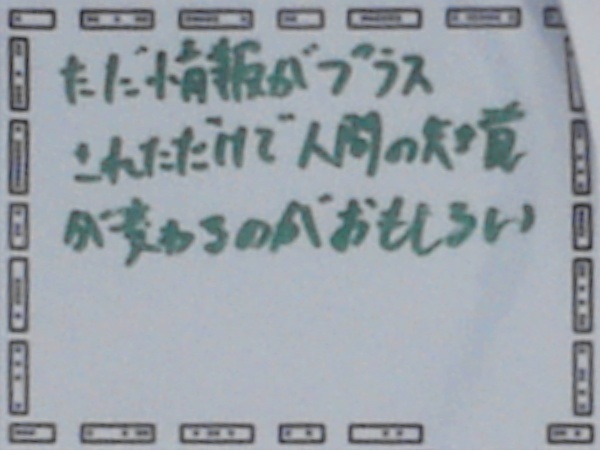 ただ情報がプラス
これただだけで人間の知覚
が変わるのがおもしろい